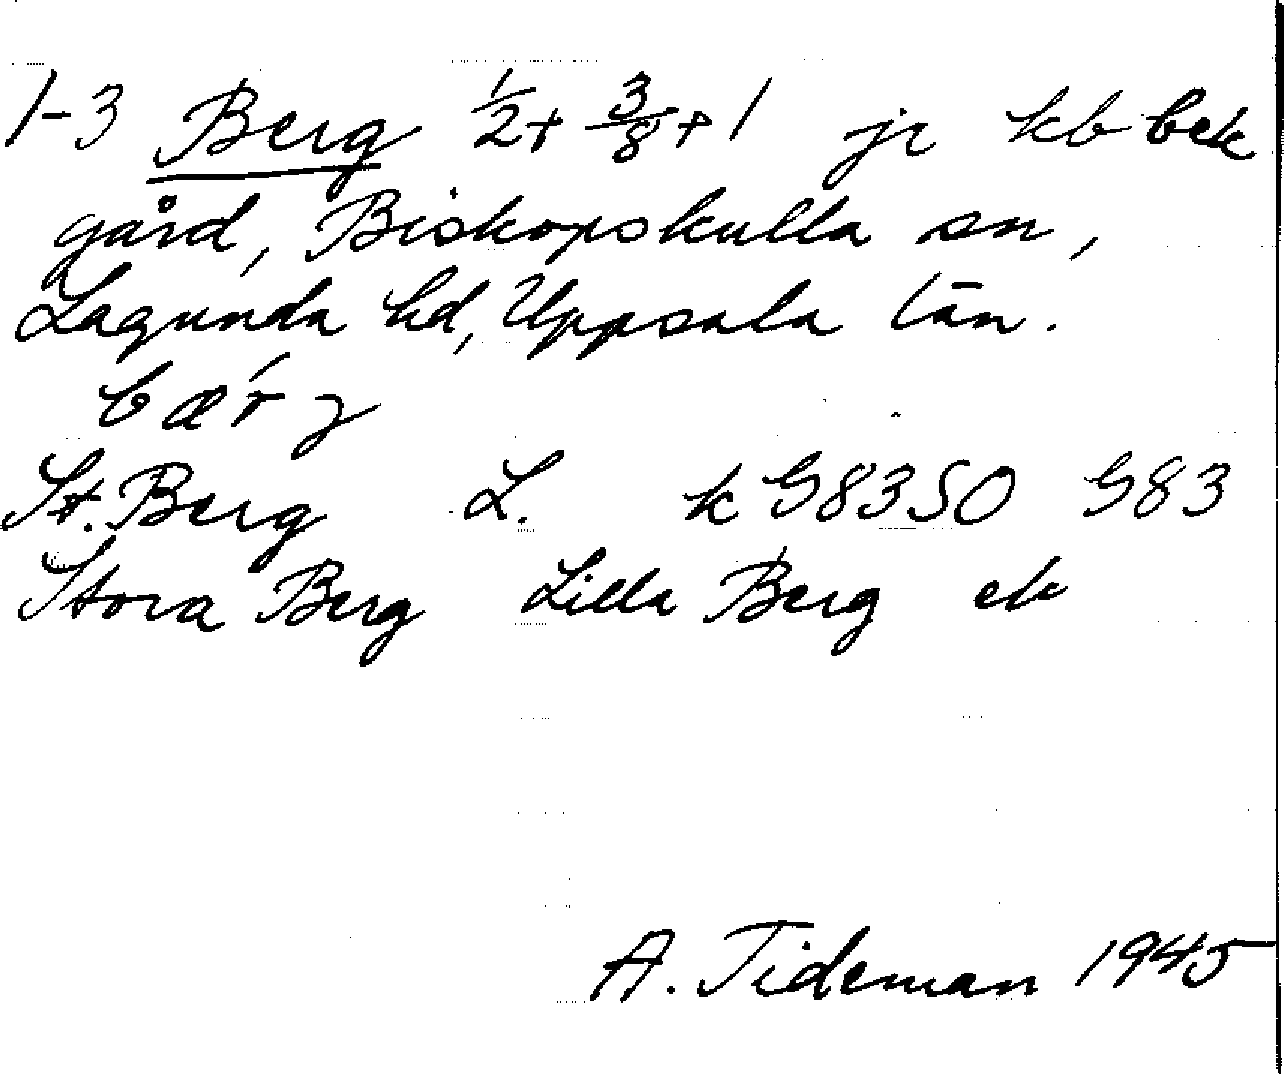 1-3 Berg 1/2 + 3/8 + 1 jr kb bek
gård, Biskopskulla sn,
Lagunda hd, Uppsala län.
bæ´rj
St. Berg L. k G8350 G83
Stora Berg Lilla Berg ek
A. Tideman 1945